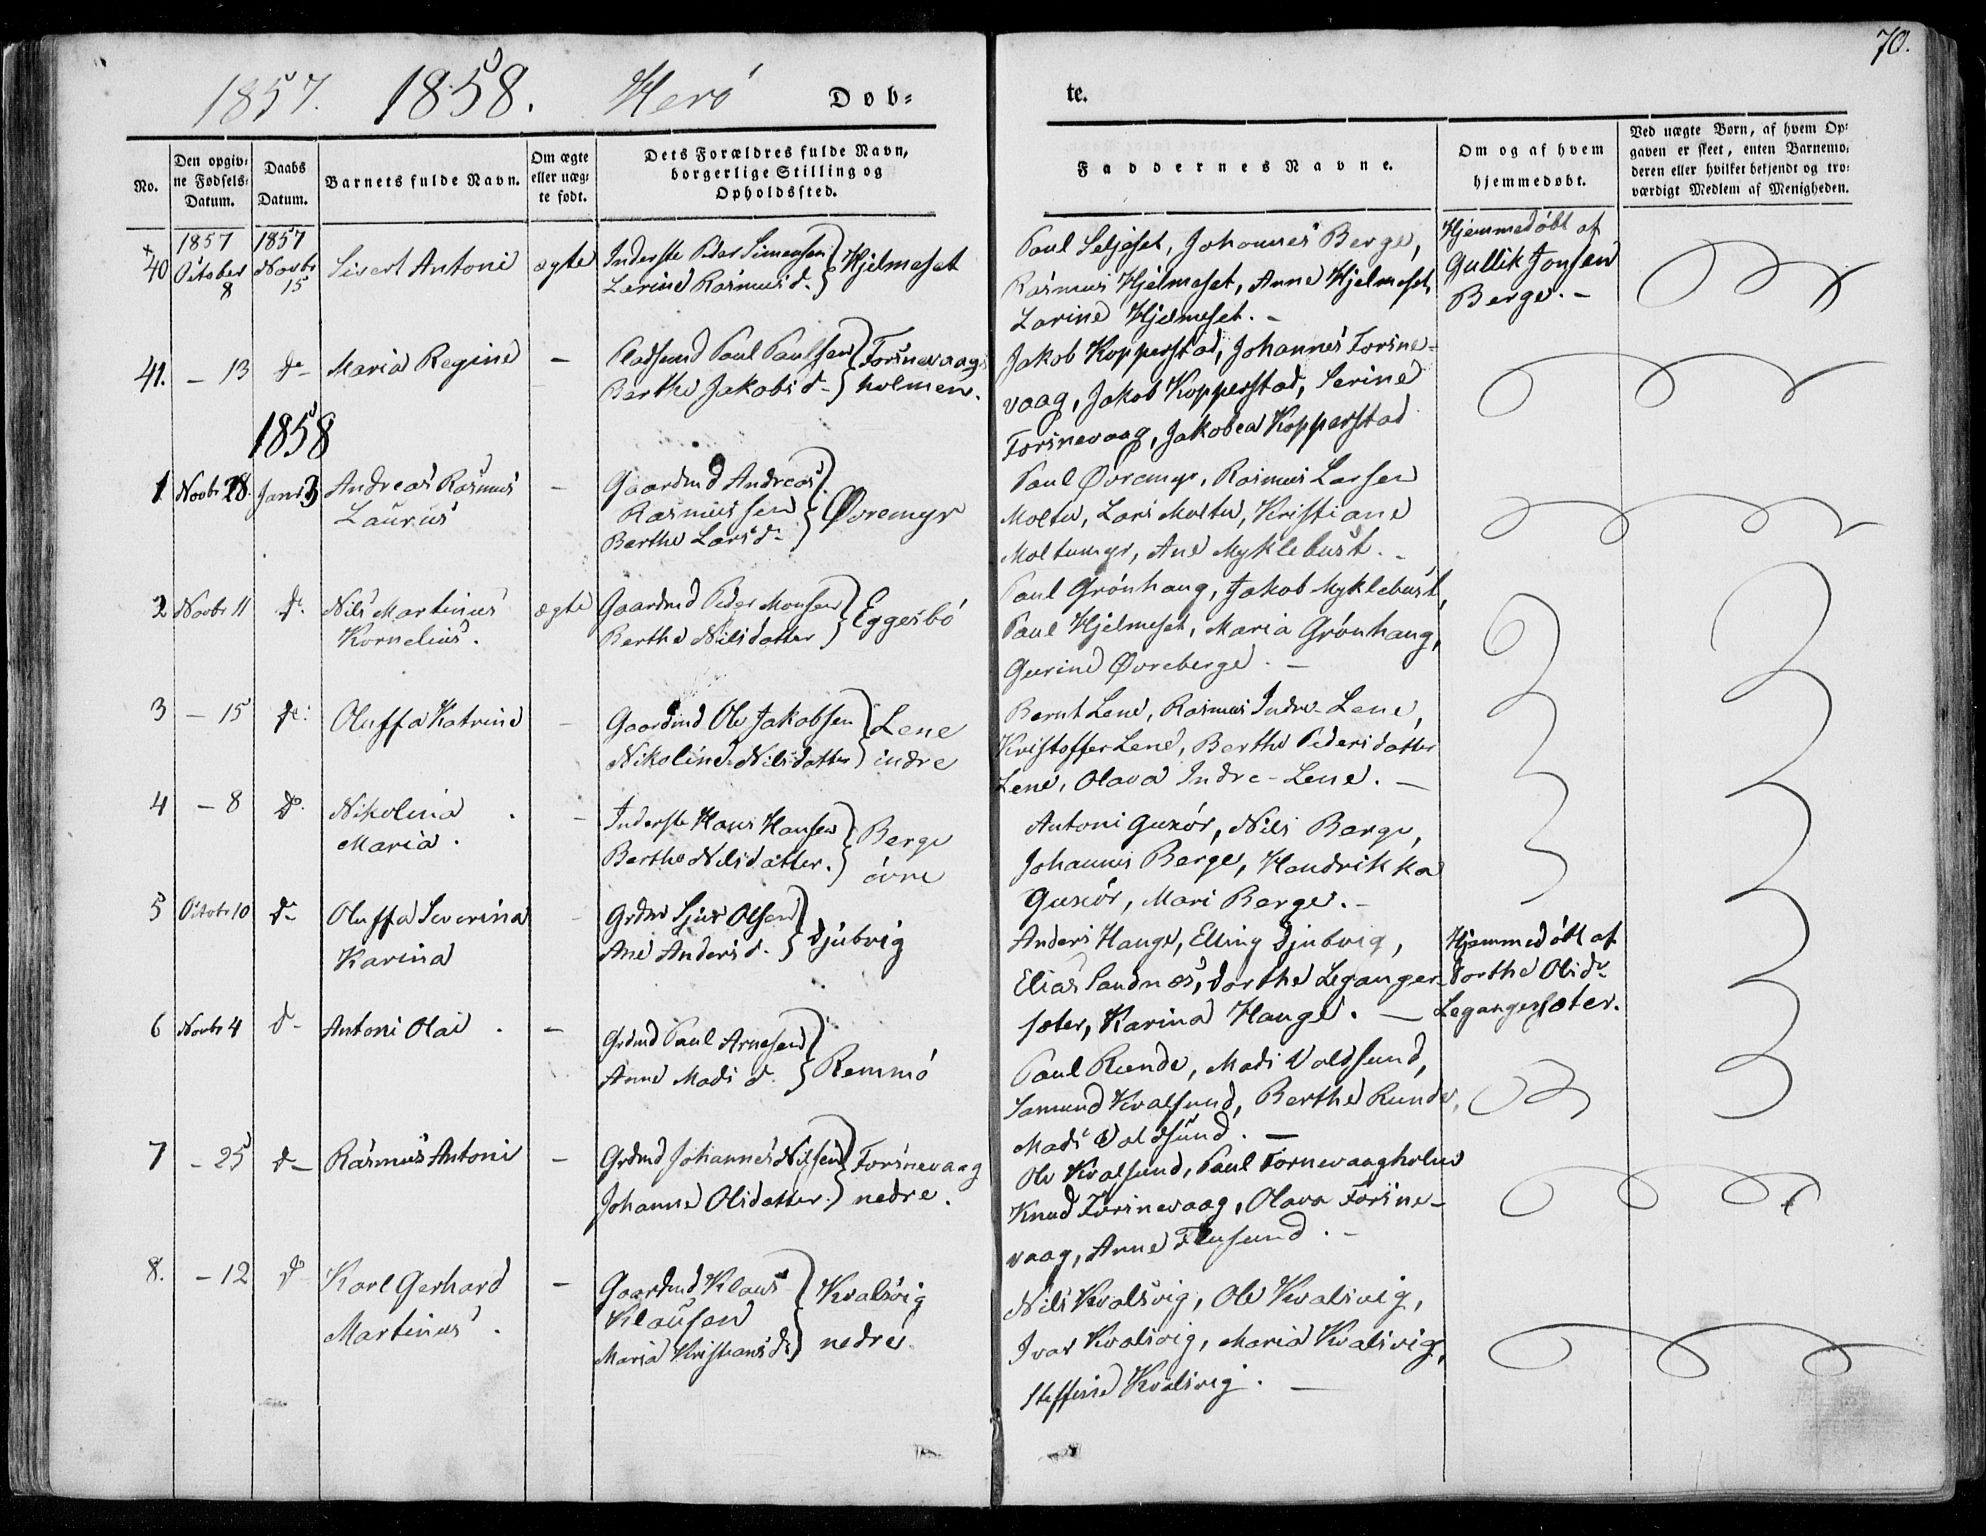 70.
1857. 1858. Herö Døb=
te.
No.
Den opgiv=
ne Fødsels=
Datum.
Daabs
Datum.
Barnets fulde Navn.
Om ægte
eller uæg=
te født.
Dets Forældres fulde Navn,
borgerlige Stilling og
Opholdssted.
Faddernes Navne.
Om og af hvem
hjemmedøbt.
Ved uægte Børn, af hvem Op=
gaven er skeet, enten Barnemo=
deren eller hvilket bekjendt og tro=
værdigt Medlem af Menigheden.
1857 1857
40 October Novbr Sivert Antoni ægte Inderste Peder Simensen Hjelmeset
8 15 Lerine Rasmusd.
Paul Seljeset, Johannes Berge,
Rasmus Hjelmeset, Anne Hjelmeset,
Larine Hjelmeset. -
Hjemmedöbt af
Gullik Jonsen
Berge. -
41. - 13 d- Maria Regine - Pladsmd Paul Paulsen Torsnevaag
Berthe Jakobsd- holmen.
Jakob Kopperstad, Johannes Torsne-
vaag, Jakob Kopperstad, Serine
Torsnevaag, Jakobea Kopperstad
1858
1 Novbr 28. Janr 3 Andreas Rasmus - Gaardmd Andreas
Laurus Rasmussen Øvremyr
Berthe Larsd-
Paul Øvremyr, Rasmus Larsen
Moltu, Lars Moltu, Kristiane
Moltumyr, Ane Myklebust. -
2 Novbr 11 d. Nils Martinus ægte Gaardmd Peder Monsen Eggesbö
Kornelius. Berthe Nilsdatter
Paul Grönhaug, Jakob Myklebust,
Paul Hjelmeset, Maria Grönhaug,
Gurine Øvreberge. -
3 - 15 d: Oluffa Katrine - Gaardmd Ole Jakobsen Lene
Nikoline Nilsdatter indre
Bernt Lene, Rasmus Indre-Lene,
Kristoffer Lene, Berthe Pedersdatter
Lene, Olava Indre-Lene. -
4 - 8 d. Nikolina - Inderste Hans Hansen Berge
Maria. Berthe Nilsdatter. övre
Antoni Gurör, Nils Berge,
Johannes Berge, Hendrikka
Gurör, Mari Berge. -
5 Octobr 10 d- Oluffa Severina - Grdmd Sjur Olsen Djubvig
Karina Ane Andersd.
Anders Hauge, Elling Djubvig,
Elias Sandnæs, Dorthe Leganger-
sæter, Karina Hauge. -
Hjemmedöbt af
Dorthe Olsdr
Legangersæter.
6 Novbr 4 d- Antoni Olai. - Grdmd Paul Arnesen Remmö
Anne Madsd.
Paul Runde, Mads Voldsund,
Samund Kvalsund, Berthe Runde,
Mads Voldsund. -
7 - 25 d- Rasmus Antoni - Grdmd Johannes Nilsen Torsnevaag
Johanne Olsdatter. nedre.
Ole Kvalsund, Paul Tornevaagholm
Knud Torsnevaag, Olava Torsne-
vaag, Anne Flusund. -
8. - 12 d Karl Gerhard - Gaardmd Klaus Kvalsvig
Martinus. Klausen nedre.
Maria Kristiansdr
Nils Kvalsvig, Ole Kvalsvig,
Ivar Kvalsvig, Maria Kvalsvig,
Steffine Kvalsvig. -